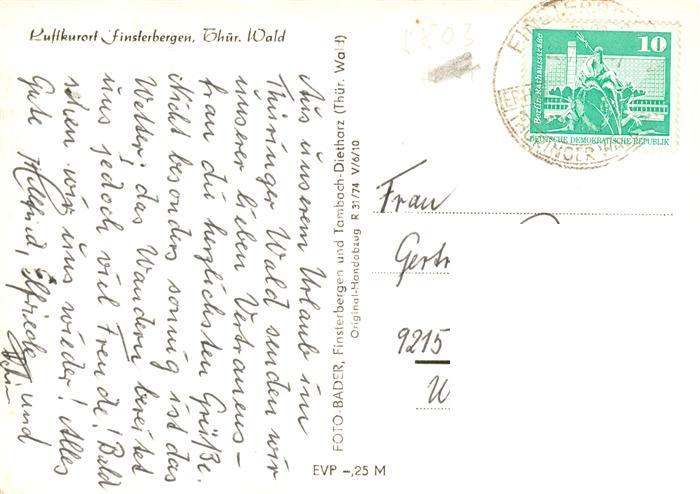 Luftkurort Finsterbergen, Thür. Wald
Aus unserem Urlaub im
Thüringer Wald senden wir
unserer lieben Vertrauens-
frau die herzlichsten Grüße.
Nicht besonders sonnig ist das
Wetter, das Wandern bereitet
uns jedoch viel Freude! Bald
sehen wir uns wieder! Alles
Gute Elfriede und
FOTO-BADER, Finsterbergen und Tambach-Dietharz (Thür. Wald)
Original-Handabzug R 31/74 V/6/10
EVP -,25 M
10
Berlin-Rathausstraße
DEUTSCHE DEMOKRATISCHE REPUBLIK
Frau
Gertr
9215
U